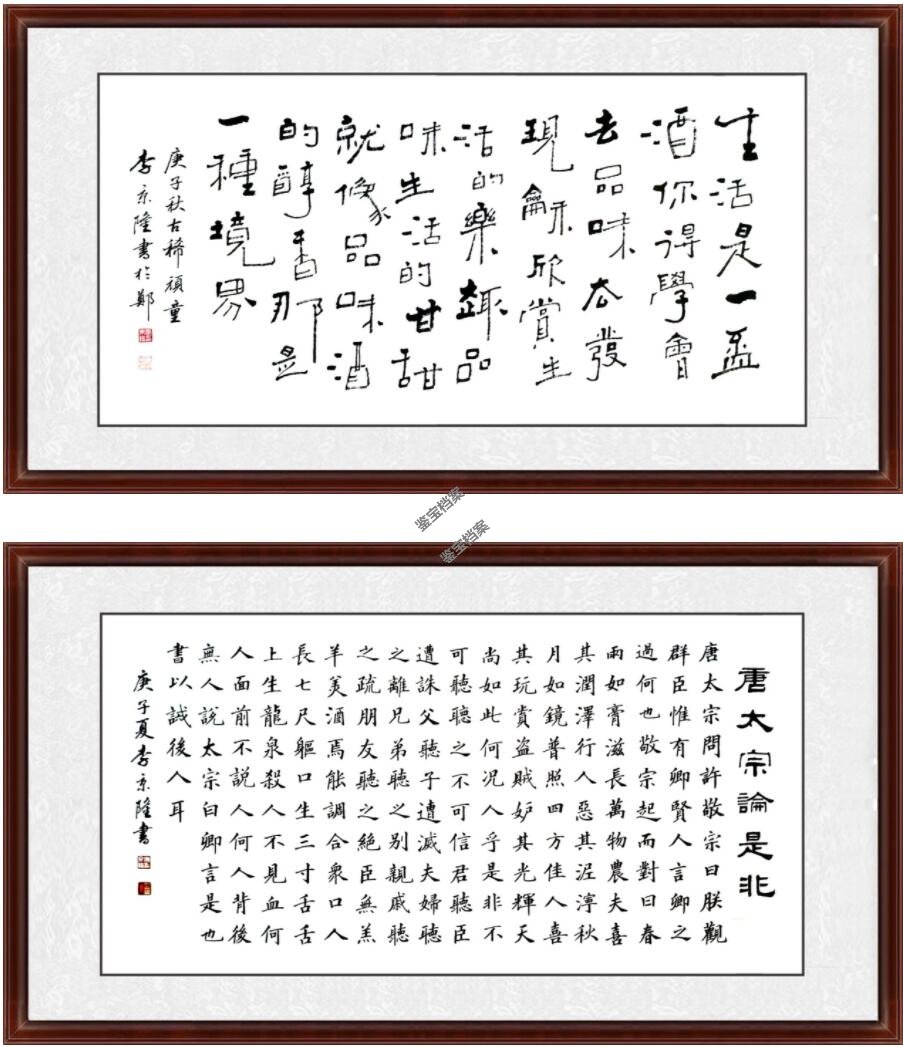 生活是一盃
酒你得學會
去品味去發
現龢欣賞生
活的樂趣品
味生活的甘甜
就像品味酒
的醇香那是
一種境界
庚子秋古稀頑童
李京隆書於鄭
鉴宝档案
鉴宝档案
唐太宗論是非
唐太宗問許敬宗曰朕觀
群臣惟有卿賢人言卿之
過何也敬宗起而對曰春
雨如膏滋長萬物農夫喜
其潤澤行人惡其泥濘秋
月如鏡普照四方佳人喜
其玩賞盜賊妒其光輝天
尚如此何況人乎是非不
可聽聽之不可信君聽臣
遭誅父聽子遭滅夫婦聽
之離兄弟聽之別親戚聽
之疏朋友聽之絕臣無羔
羊美酒焉能調合衆口人
長七尺軀口生三寸舌舌
上生龍泉殺人不見血何
人面前不說人何人背後
無人說太宗曰卿言是也
書以誡後人耳
庚子夏李京隆書